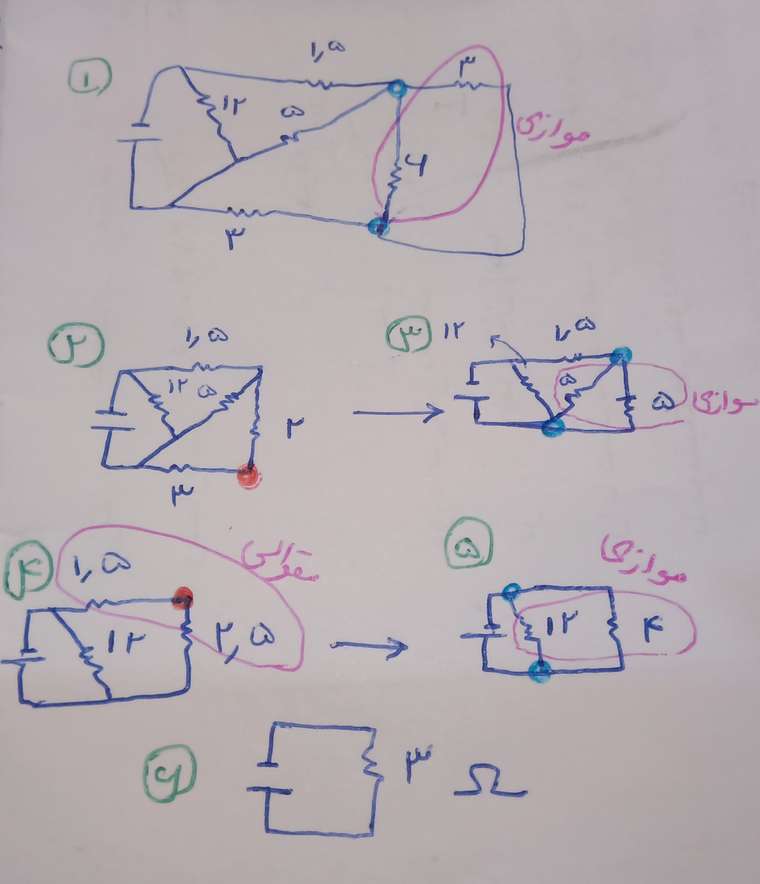 ۱
۱,۵
۳
۱۲
۵
موازی
۶
۳
۲
۱,۵
۱۲
۵
۲
۳
۳
۱۲
۱,۵
۵
۵
موازی
۴
۱,۵
متوالی
۱۲
۲,۵
۵
موازی
۱۲
۴
۶
۳ Ω